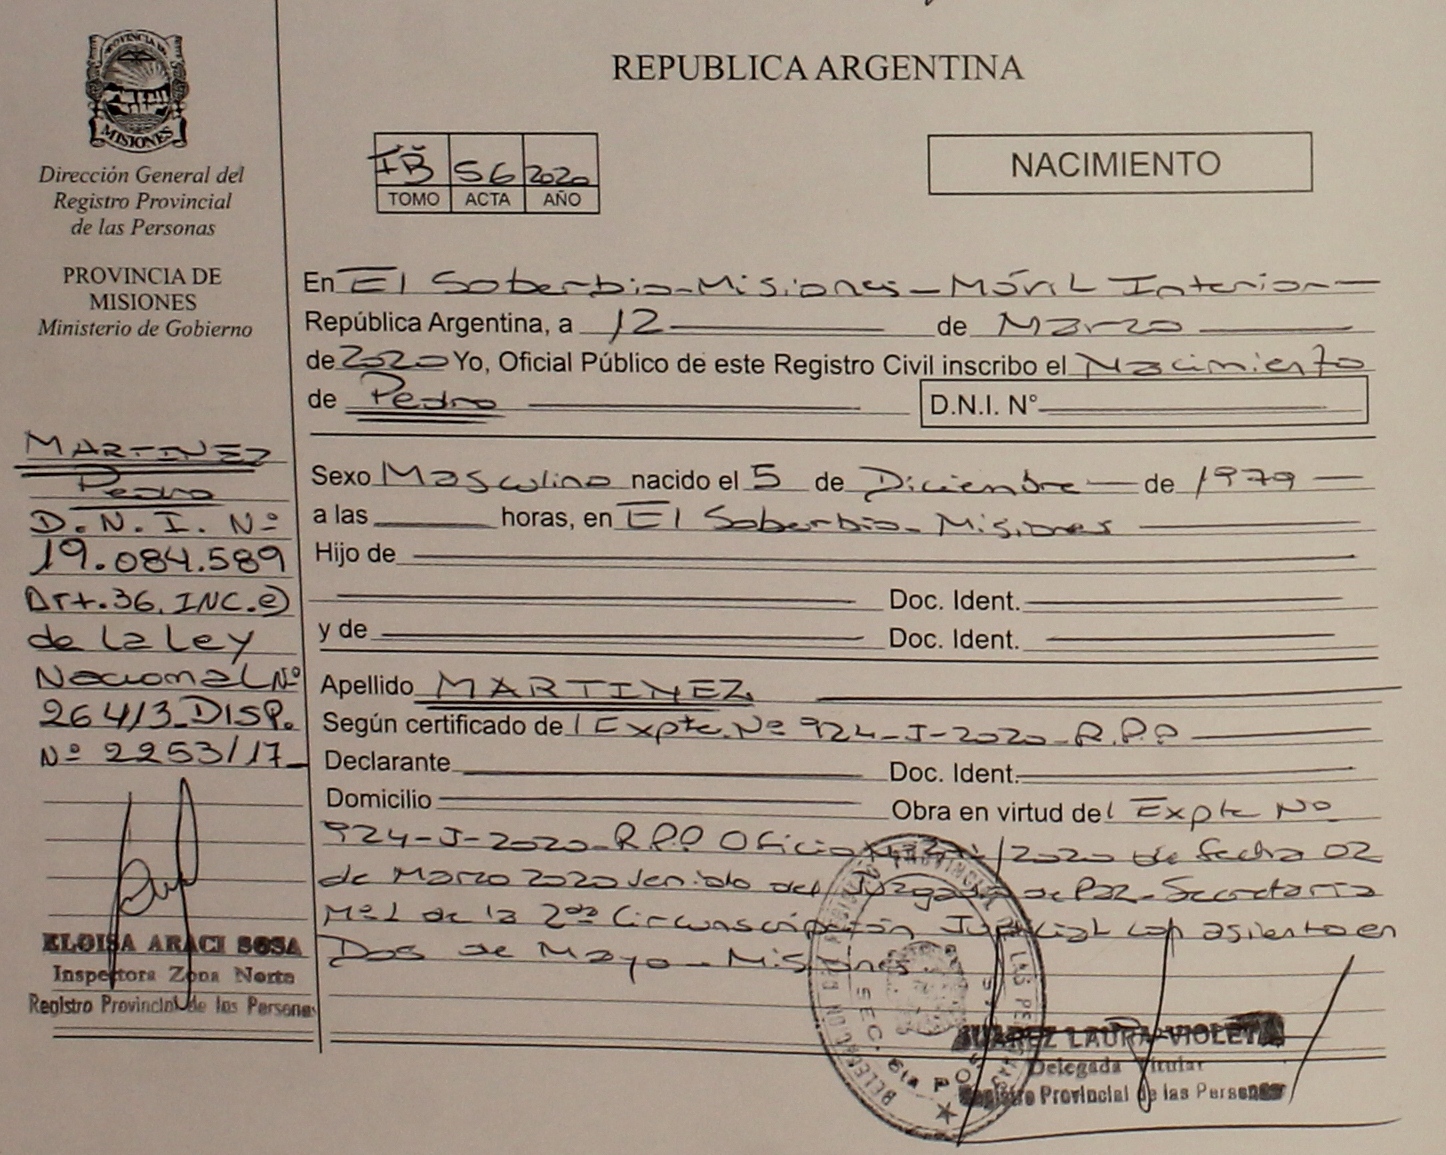 PROVINCIA DE
MISIONES
Dirección General del
Registro Provincial
de las Personas
PROVINCIA DE
MISIONES
Ministerio de Gobierno
MARTINEZ
Pedro
D.N.I. Nº
19.084.589
Art.36, INC.e)
de La Ley
Nacional Nº
26413_DISP.
Nº 2253/17_
ELOISA ARACI SOSA
Inspectora Zona Norte
Registro Provincial de las Personas
REPUBLICA ARGENTINA
56 2020
TOMO ACTA AÑO
NACIMIENTO
En El Soberbio-Misiones-Móvil Interior
República Argentina, a 12 de Marzo
de 2020 Yo, Oficial Público de este Registro Civil inscribo el Nacimiento
de Pedro D.N.I. N°
Sexo Masculino nacido el 5 de Diciembre de 1979
a las horas, en El Soberbio-Misiones
Hijo de
Doc. Ident.
y de Doc. Ident.
Apellido MARTINEZ
Según certificado de l Expte. Nº 924-J-2020-R.P.P
Declarante Doc. Ident.
Domicilio Obra en virtud de l Expte Nº
924-J-2020-R.P.P Oficio /2020 de fecha 02
de Marzo 2020 venido del Juzgado de Paz-Secretaría
de la 2da Circunscripción Judicial con asiento en
Dos de Mayo-Misiones.
JUAREZ LAURA VIOLETA
Delegada Titular
Registro Provincial de las Personas